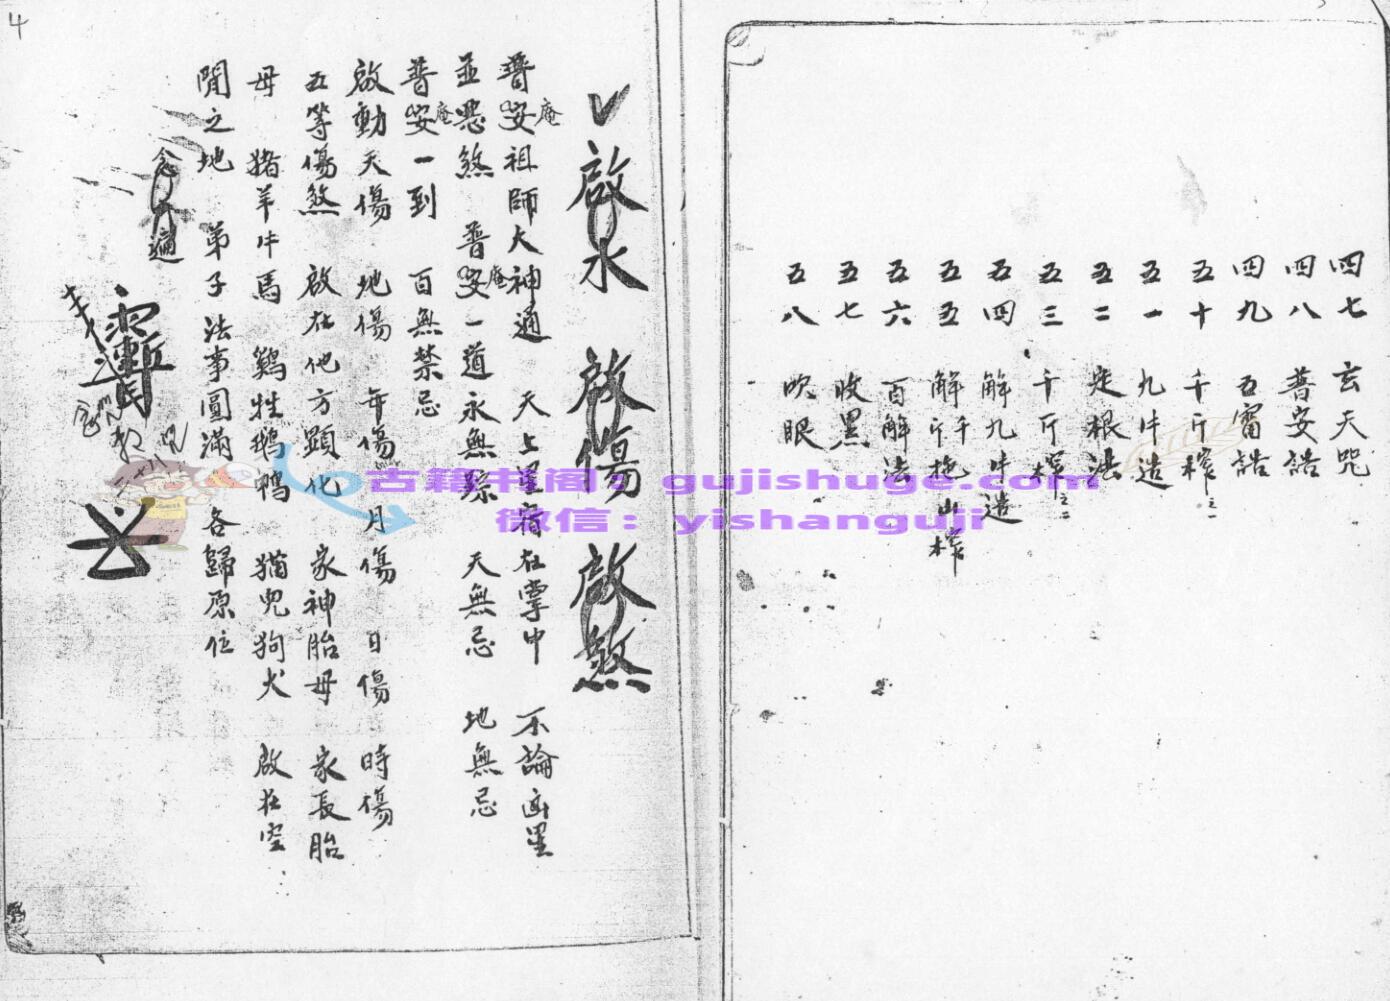 四七 玄天咒
四八 普安誥
四九 五雷誥
五十 千斤榨之一
五一 九牛造
五二 定根法
五三 千斤榨之二
五四 解九牛造
五五 解千斤拖山榨
五六 百解法
五七 收黑
五八 吹眼
啟水 啟傷 啟煞
普安庵祖師大神通 天上星宿在掌中 不論凶星
並惡煞 普安庵一道永無踪 天無忌 地無忌
普安庵一到 百無禁忌
啟動天傷 地傷 年傷 月傷 日傷 時傷
五等傷煞 啟在他方顯化 家神胎母 家長胎
母 猪羊牛馬 鷄牲鵝鴨 猫兒狗犬 啟在空
閒之地 弟子法事圓滿 各歸原位
4
古籍书阁：gujishuge.com
微信：yishanguji